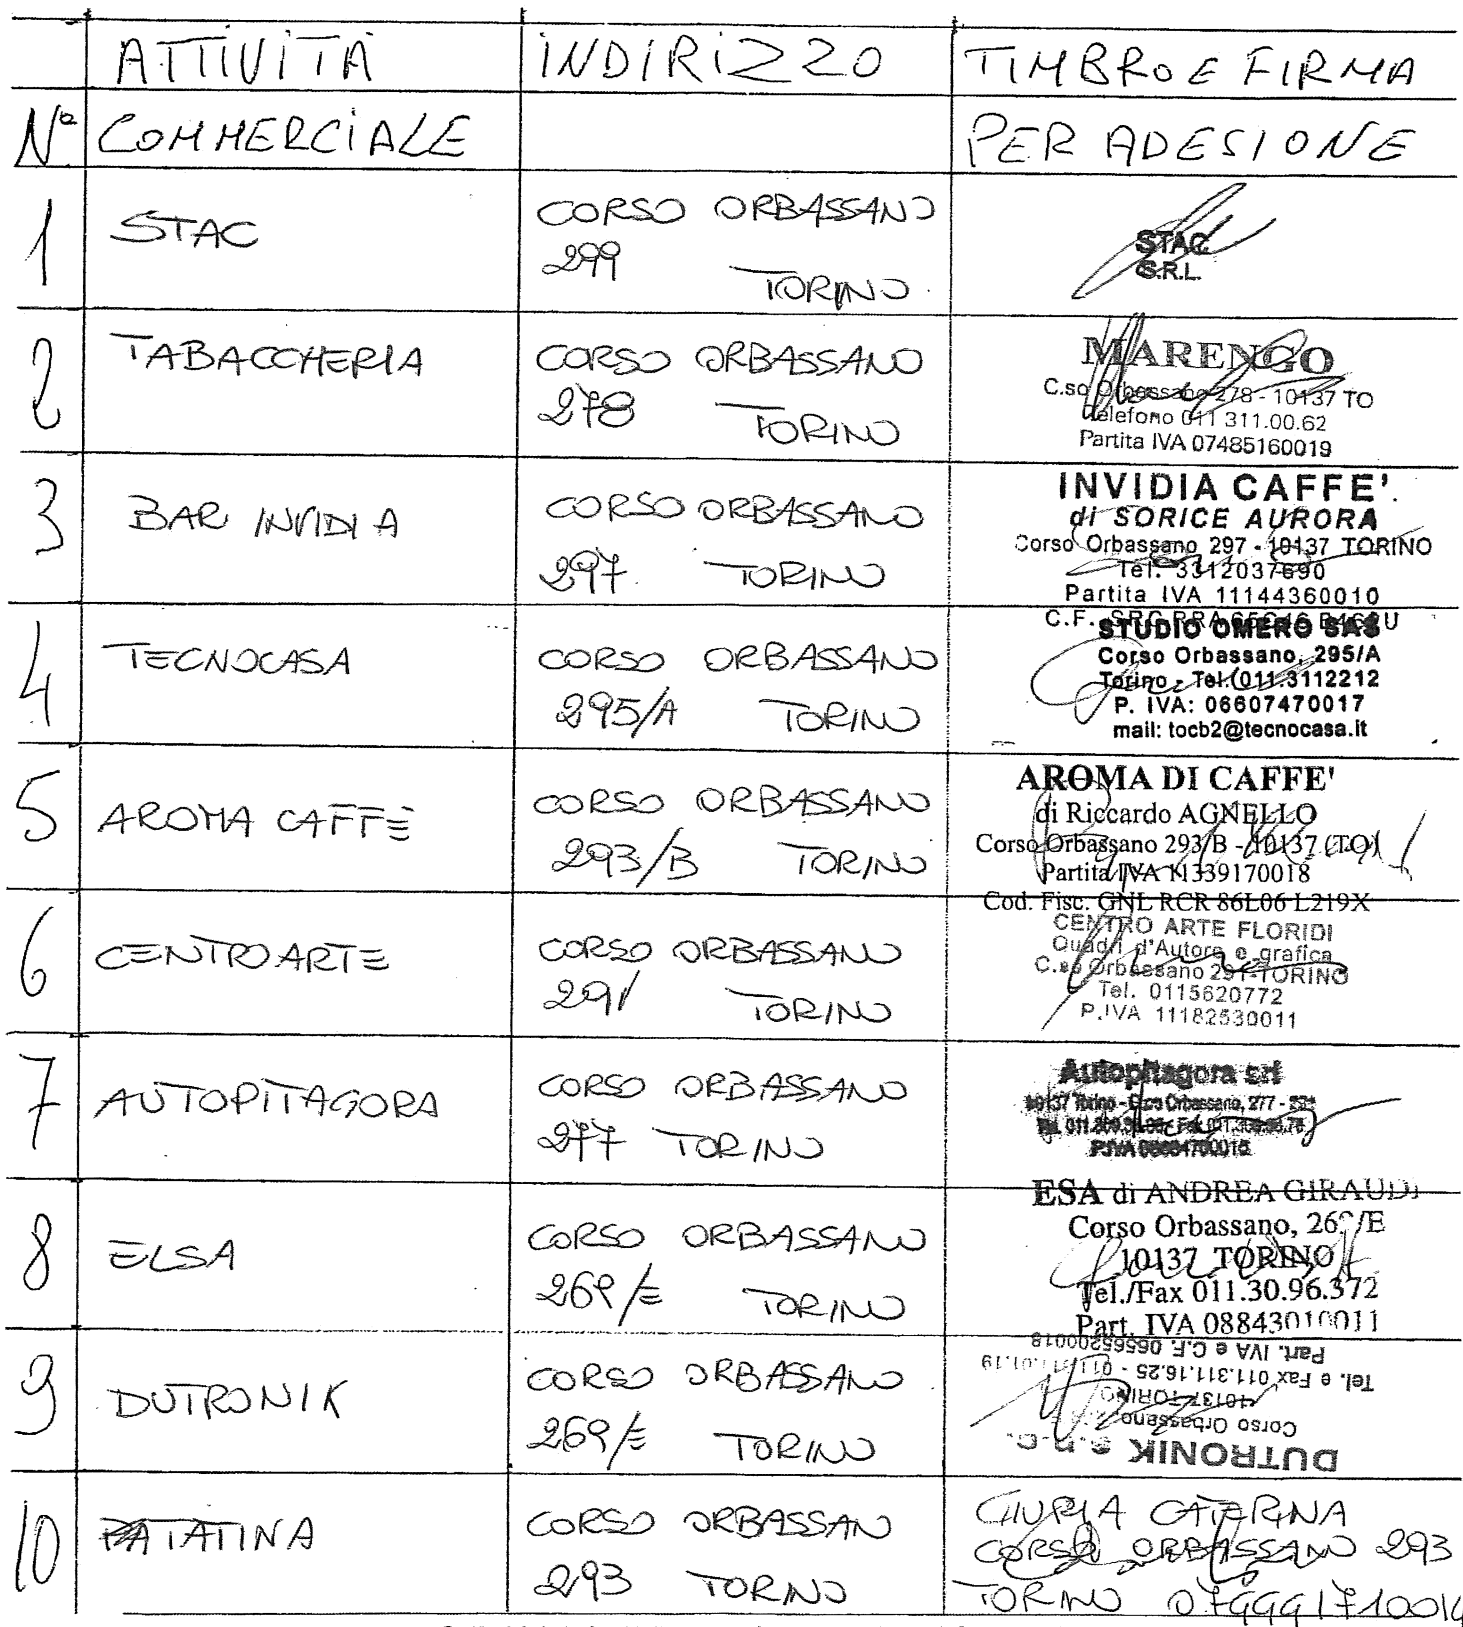 ATTIVITÀ INDIRIZZO TIMBRO E FIRMA
N° COMMERCIALE PER ADESIONE
1 STAC
CORSO ORBASSANO
299 TORINO
STAC
S.R.L.
2 TABACCHERIA
CORSO ORBASSANO
278 TORINO
MARENGO
C.so Orbassano 278 - 10137 TO
Telefono 011 311.00.62
Partita IVA 07485160019
3 BAR INVIDIA
CORSO ORBASSANO
297 TORINO
INVIDIA CAFFE'
di SORICE AURORA
Corso Orbassano 297 - 10137 TORINO
Tel. 3312037690
Partita IVA 11144360010
C.F.
4 TECNOCASA
CORSO ORBASSANO
295/A TORINO
STUDIO OMERO SAS
Corso Orbassano, 295/A
Torino - Tel. 011.3112212
P. IVA: 06607470017
mail: tocb2@tecnocasa.it
5 AROMA CAFFÈ
CORSO ORBASSANO
293/B TORINO
AROMA DI CAFFE'
di Riccardo AGNELLO
Corso Orbassano 293/B - 10137 (TO)
Partita IVA 11339170018
Cod. Fisc. GNL RCR 86L06 L219X
6 CENTROARTE
CORSO ORBASSANO
291 TORINO
CENTRO ARTE FLORIDI
Quadri d'Autore e grafica
C.so Orbassano 291-TORINO
Tel. 0115620772
P.IVA 11182530011
7 AUTOPITAGORA
CORSO ORBASSANO
277 TORINO
Autopitagora srl
10137 Torino - C.so Orbassano, 277 -
8 ELSA
CORSO ORBASSANO
269/E TORINO
ESA di ANDREA GIRAUDI
Corso Orbassano, 269/E
10137 TORINO
Tel./Fax 011.30.96.372
Part. IVA 08843010011
9 DUTRONIK
CORSO ORBASSANO
269/E TORINO
DUTRONIK S.N.C.
Corso Orbassano,
10137 TORINO
Tel. e Fax 011.311.16.25 - 011.311.01.19
Part. IVA e C.F. 05656520018
10 PATATINA
CORSO ORBASSAN
293 TORINO
GIURIA CATERINA
CORSO ORBASSANO 293
TORINO